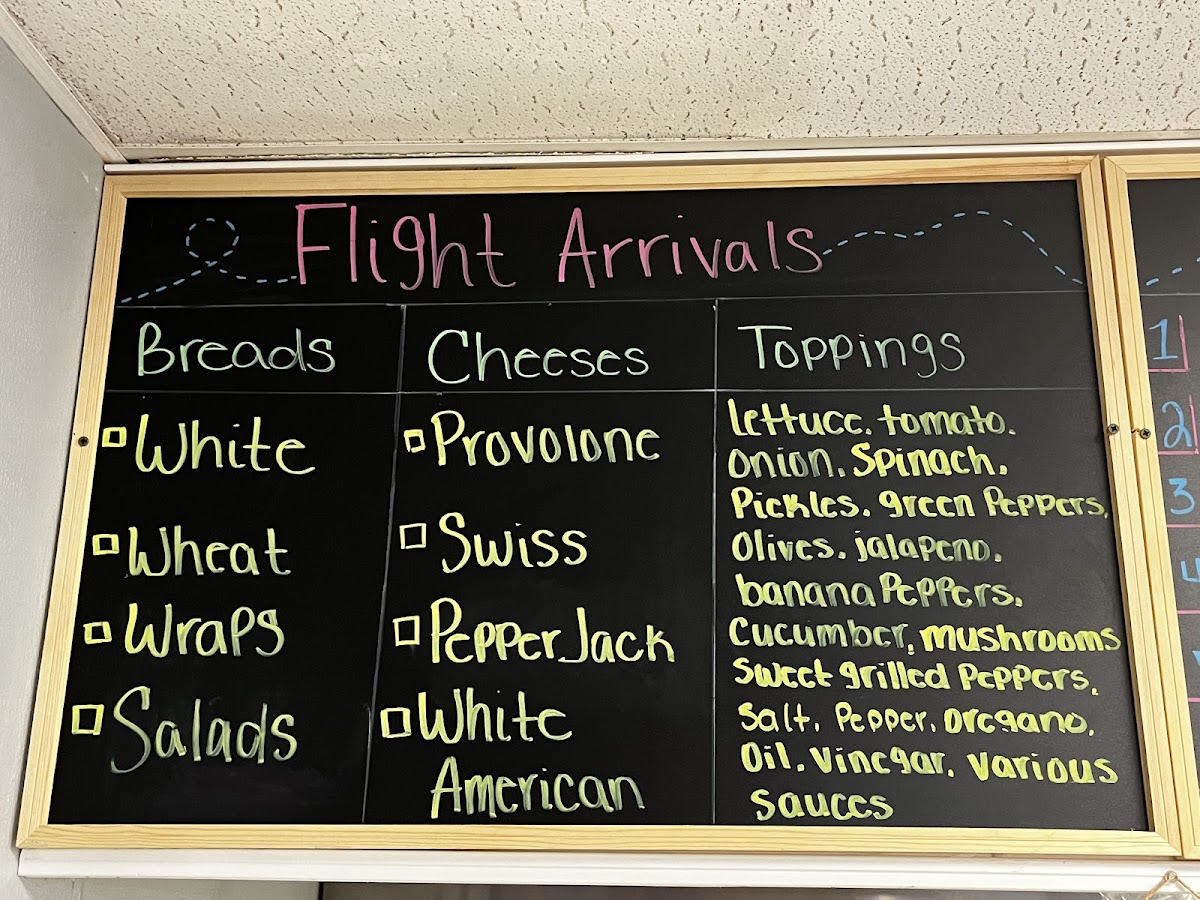 Flight Arrivals
Breads
White
Wheat
Wraps
Salads
Cheeses
Provolone
Swiss
Pepper Jack
White
American
Toppings
lettuce. tomato.
onion. Spinach.
Pickles. green Peppers.
Olives. jalapeno.
banana Peppers.
Cucumber. mushrooms
Sweet grilled Peppers.
Salt. Pepper. oregano.
Oil. Vinegar. various
sauces
1
2
3
4